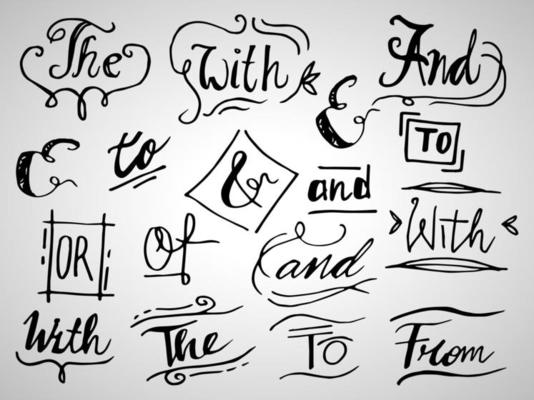 The With And
& to & and & TO
OR Of and With
With The TO From